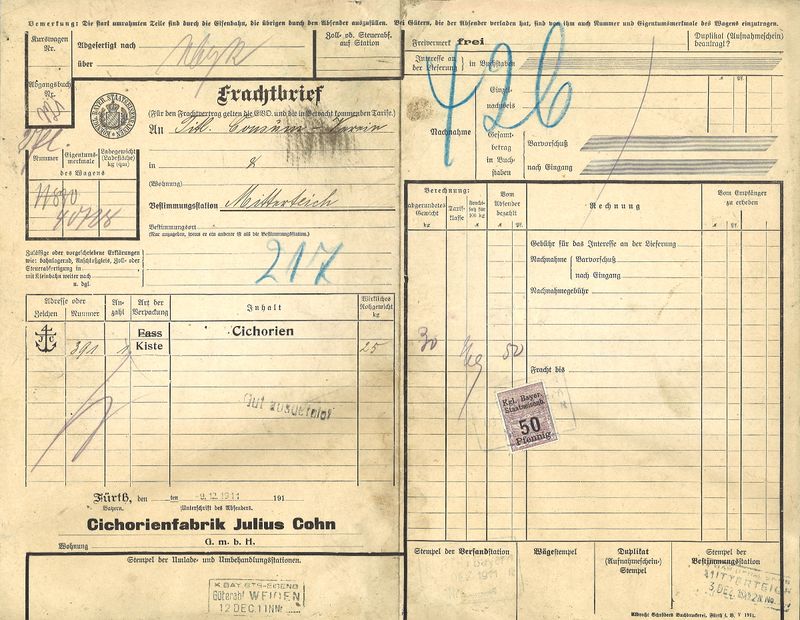 Bemerkung: Die stark umrahmten Teile sind durch die Eisenbahn, die übrigen durch den Absender auszufüllen. Bei Gütern, die der Absender verladen hat, sind von ihm auch Nummer und Eigentumsmerkmale des Wagens einzutragen.
Kurswagen Nr.
Abgefertigt nach
über
Zoll- od. Steuerabf. auf Station
Abgangsbuch Nr.
Frachtbrief
(Für den Frachtvertrag gelten die EVO. und die in Betracht kommenden Tarife.)
An
Consum-Verein
in
(Wohnung)
Nummer
Eigentums-merkmale
Ladegewicht (Ladefläche) kg (qm)
des Wagens
Bestimmungsstation Mitterteich
Bestimmungsort
(Nur anzugeben, wenn er ein anderer ist als die Bestimmungsstation.)
Zulässige oder vorgeschriebene Erklärungen
wie: bahnlagernd, Anschlußgleis, Zoll- oder
Steuerabfertigung in
mit Kleinbahn weiter nach
u. dgl.
217
Adresse oder
Zeichen
Nummer
An-zahl
Art der Verpackung
Inhalt
Wirkliches Rohgewicht kg
J C
391
1
Fass
Kiste
Cichorien
25
Gut ausgefolgt
Fürth, den
ten
191
Bayern.
Unterschrift des Absenders.
Cichorienfabrik Julius Cohn
G. m. b. H.
Wohnung
Stempel der Umlade- und Umbehandlungsstationen.
Güterabf WEIDEN
12 DEZ 11
Freivermerk frei
Duplikat (Aufnahmeschein) beantragt?
Interesse an der Lieferung
in Buchstaben
426
Nachnahme
Einzel-nachweis
Gesamt-betrag in Buch-staben
Barvorschuß
nach Eingang
Berechnung:
abgerundetes Gewicht kg
Tarif-klasse
Frachtsatz für 100 kg
Vom Absender bezahlt
Rechnung
Vom Empfänger zu erheben
Gebühr für das Interesse an der Lieferung
Nachnahme
Barvorschuß
nach Eingang
Nachnahmegebühr
30
50
Fracht bis
Kgl. Bayer.
Staatseisenb.
50
Pfennig
Stempel der Versandstation
Wägestempel
Duplikat
(Aufnahmeschein-)
Stempel
Stempel der
Bestimmungsstation
MITTERTEICH
Albrecht Schröders Buchdruckerei, Fürth i. B.